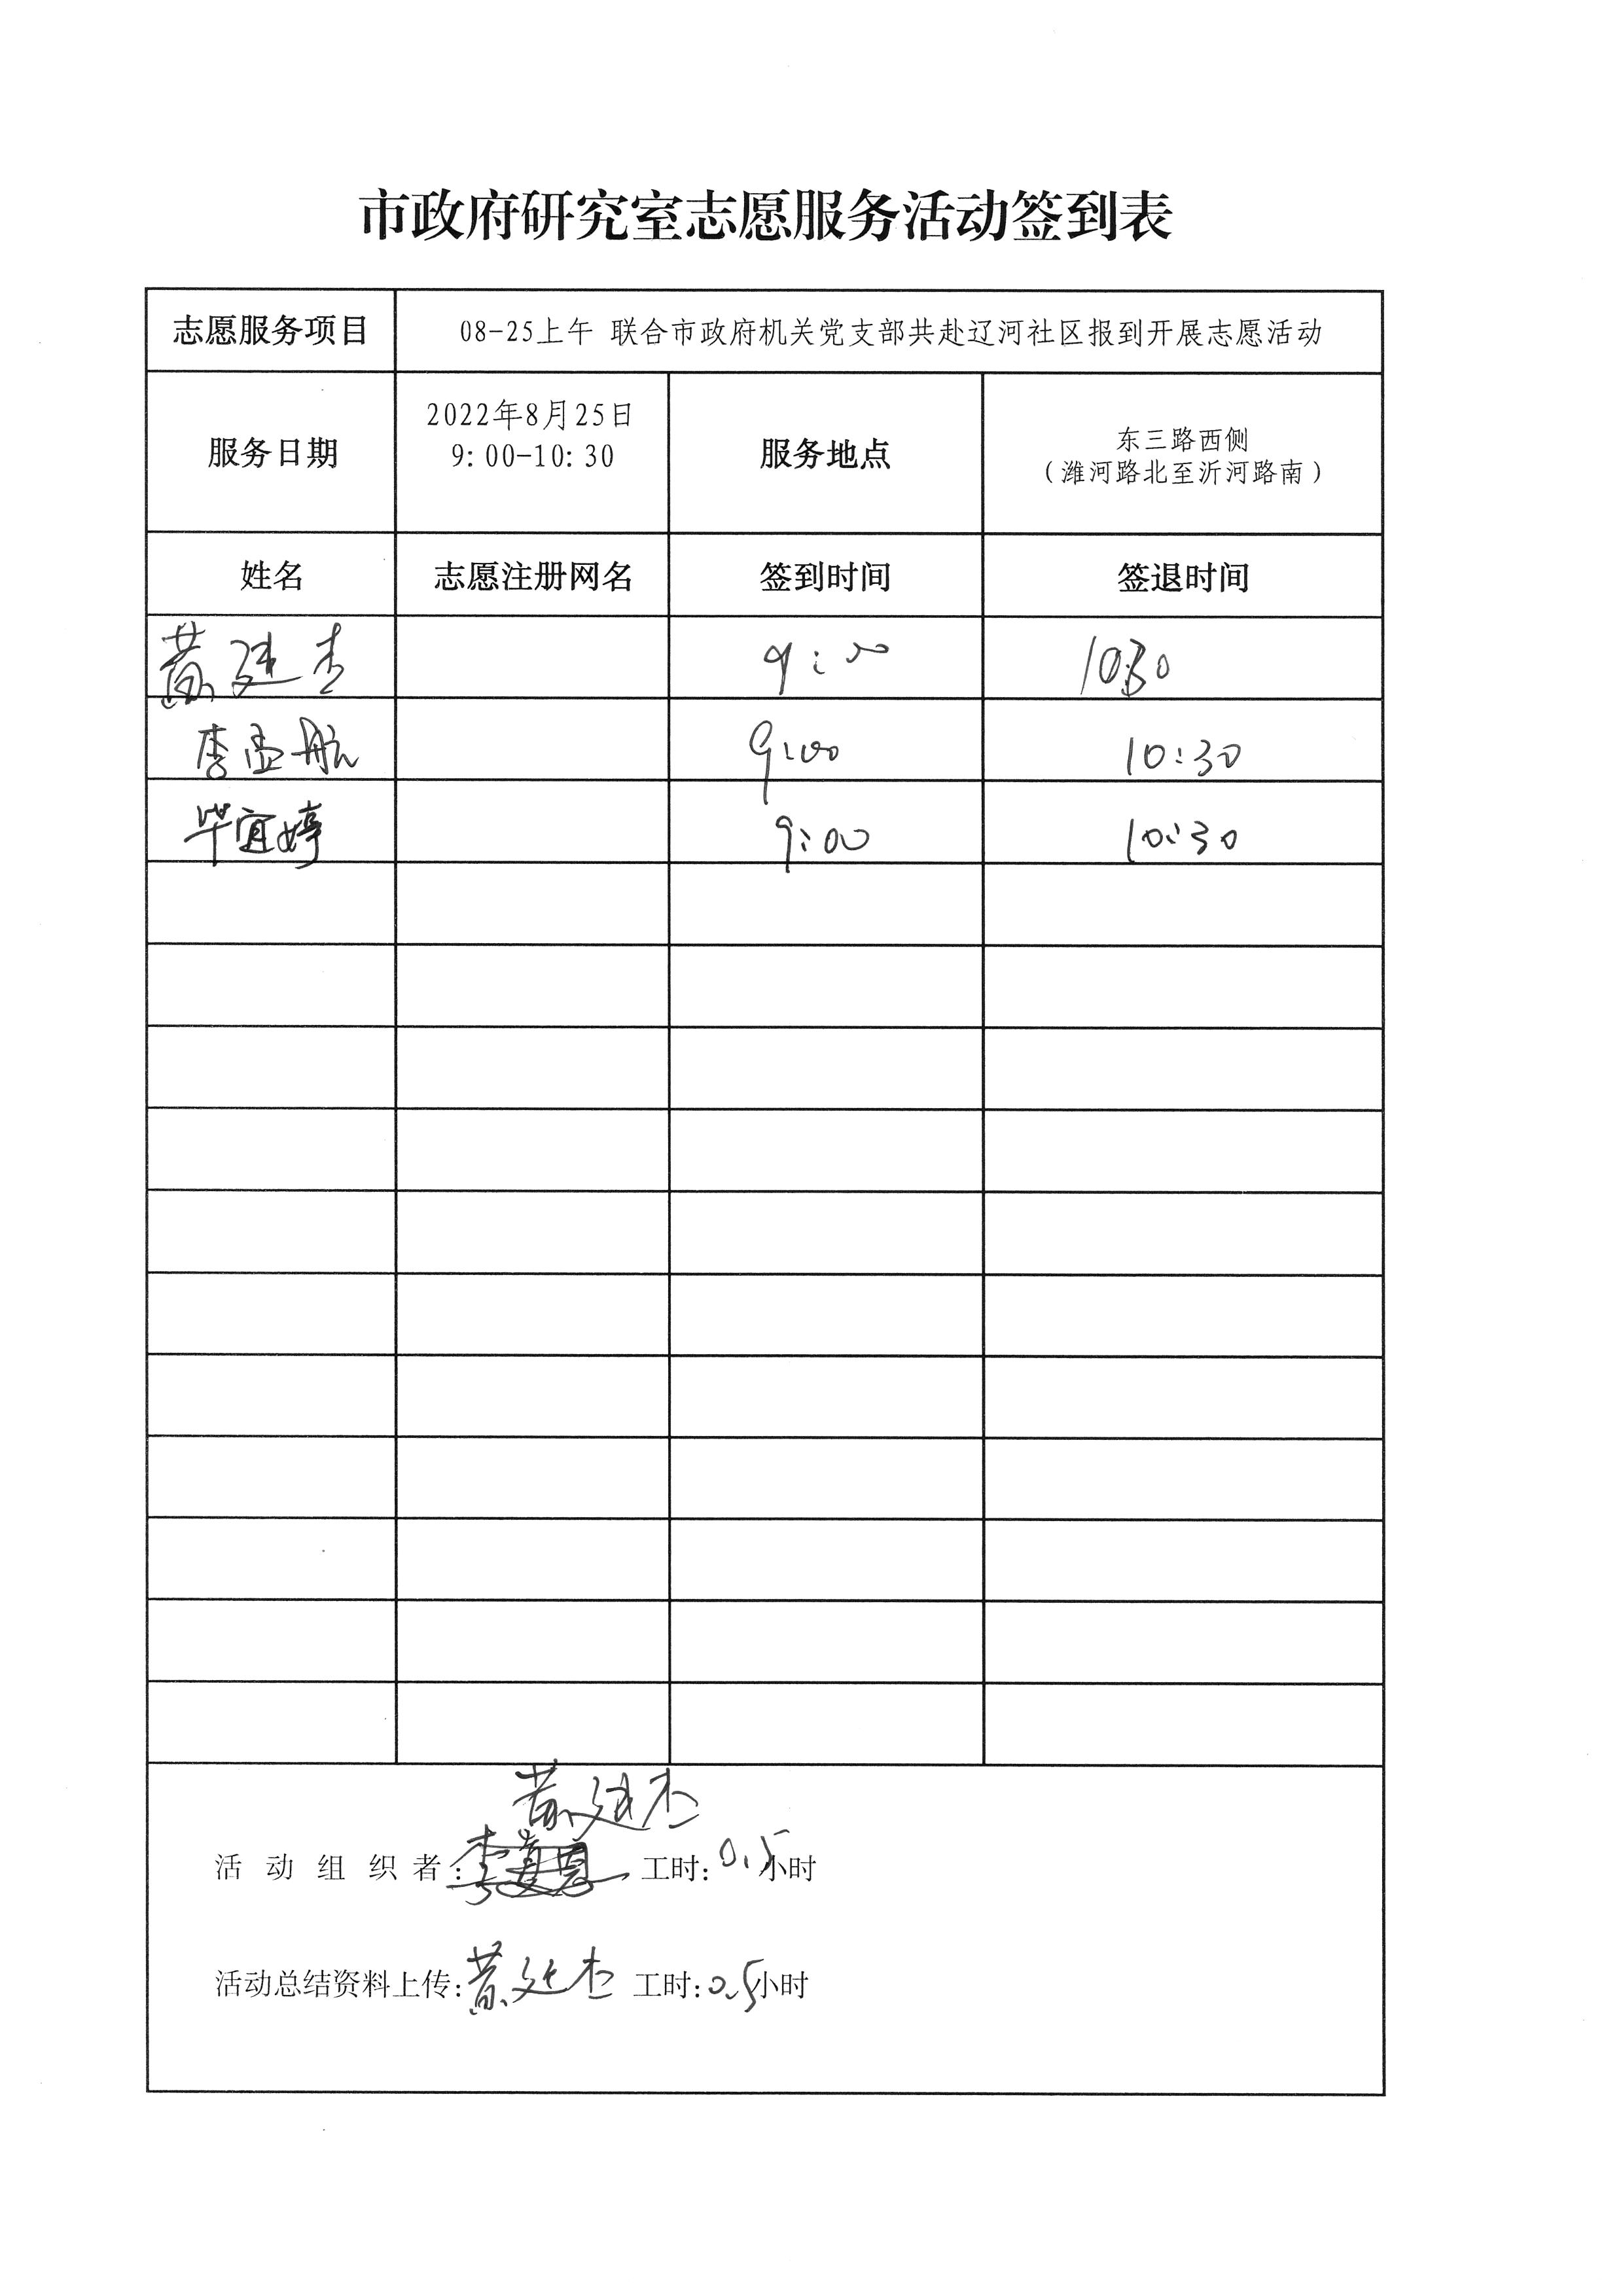 市政府研究室志愿服务活动签到表
志愿服务项目 08-25上午 联合市政府机关党支部共赴辽河社区报到开展志愿活动
服务日期 2022年8月25日 9:00-10:30 服务地点 东三路西侧 (潍河路北至沂河路南)
姓名 志愿注册网名 签到时间 签退时间
黄廷杰 9:00 10:30
李孟航 9:00 10:30
毕宜婷 9:00 10:30
黄廷杰
活动组织者: 工时:0.5小时
活动总结资料上传:黄廷杰 工时:0.5小时